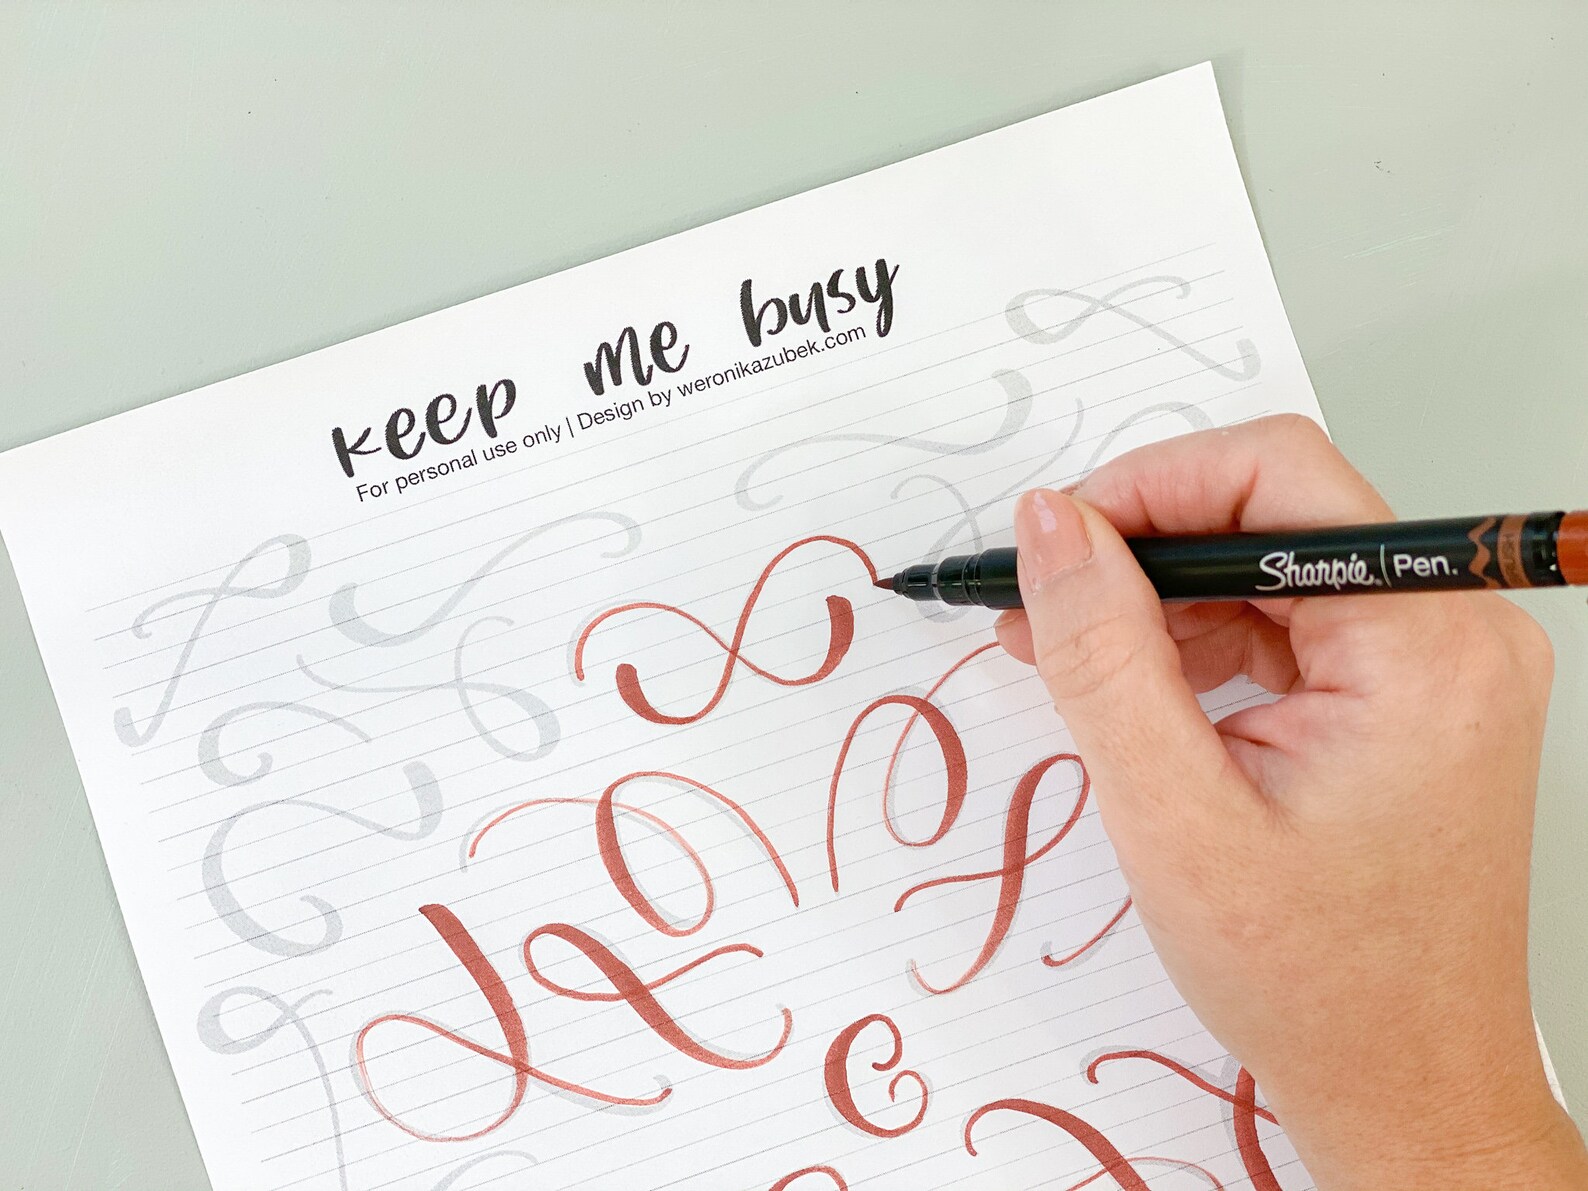 keep me busy
For personal use only | Design by weronikazubek.com
Sharpie. | Pen.
BRUSH